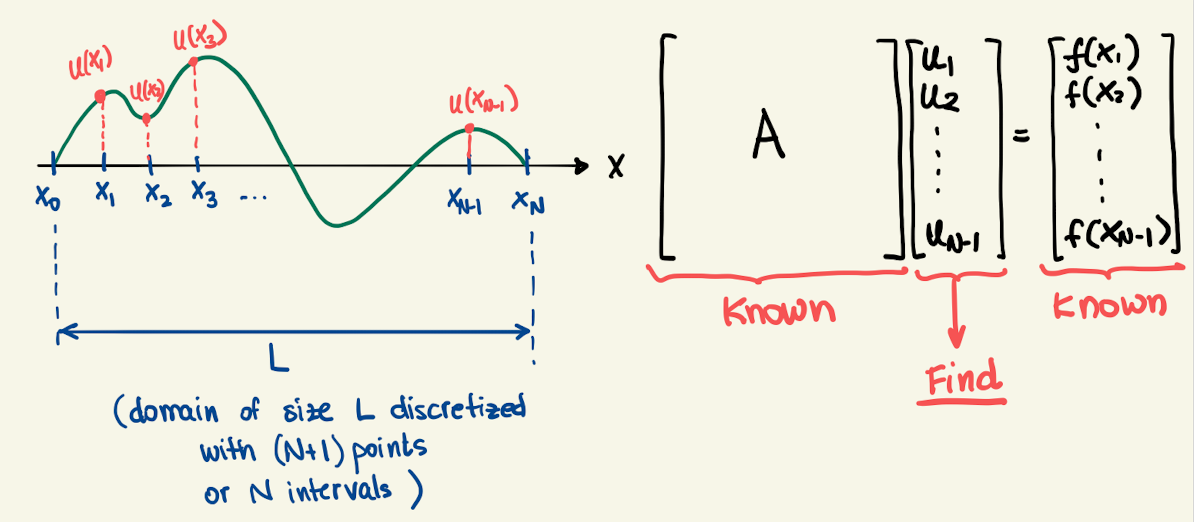 u(x₁)
u(x₂)
u(x₃)
u(x_{N-1})
x
x₀ x₁ x₂ x₃ ... x_{N-1} x_N
L
(domain of size L discretized
with (N+1) points
or N intervals)
A
u₁
u₂
⋮
u_{N-1}
=
f(x₁)
f(x₂)
⋮
f(x_{N-1})
Known
Find
Known